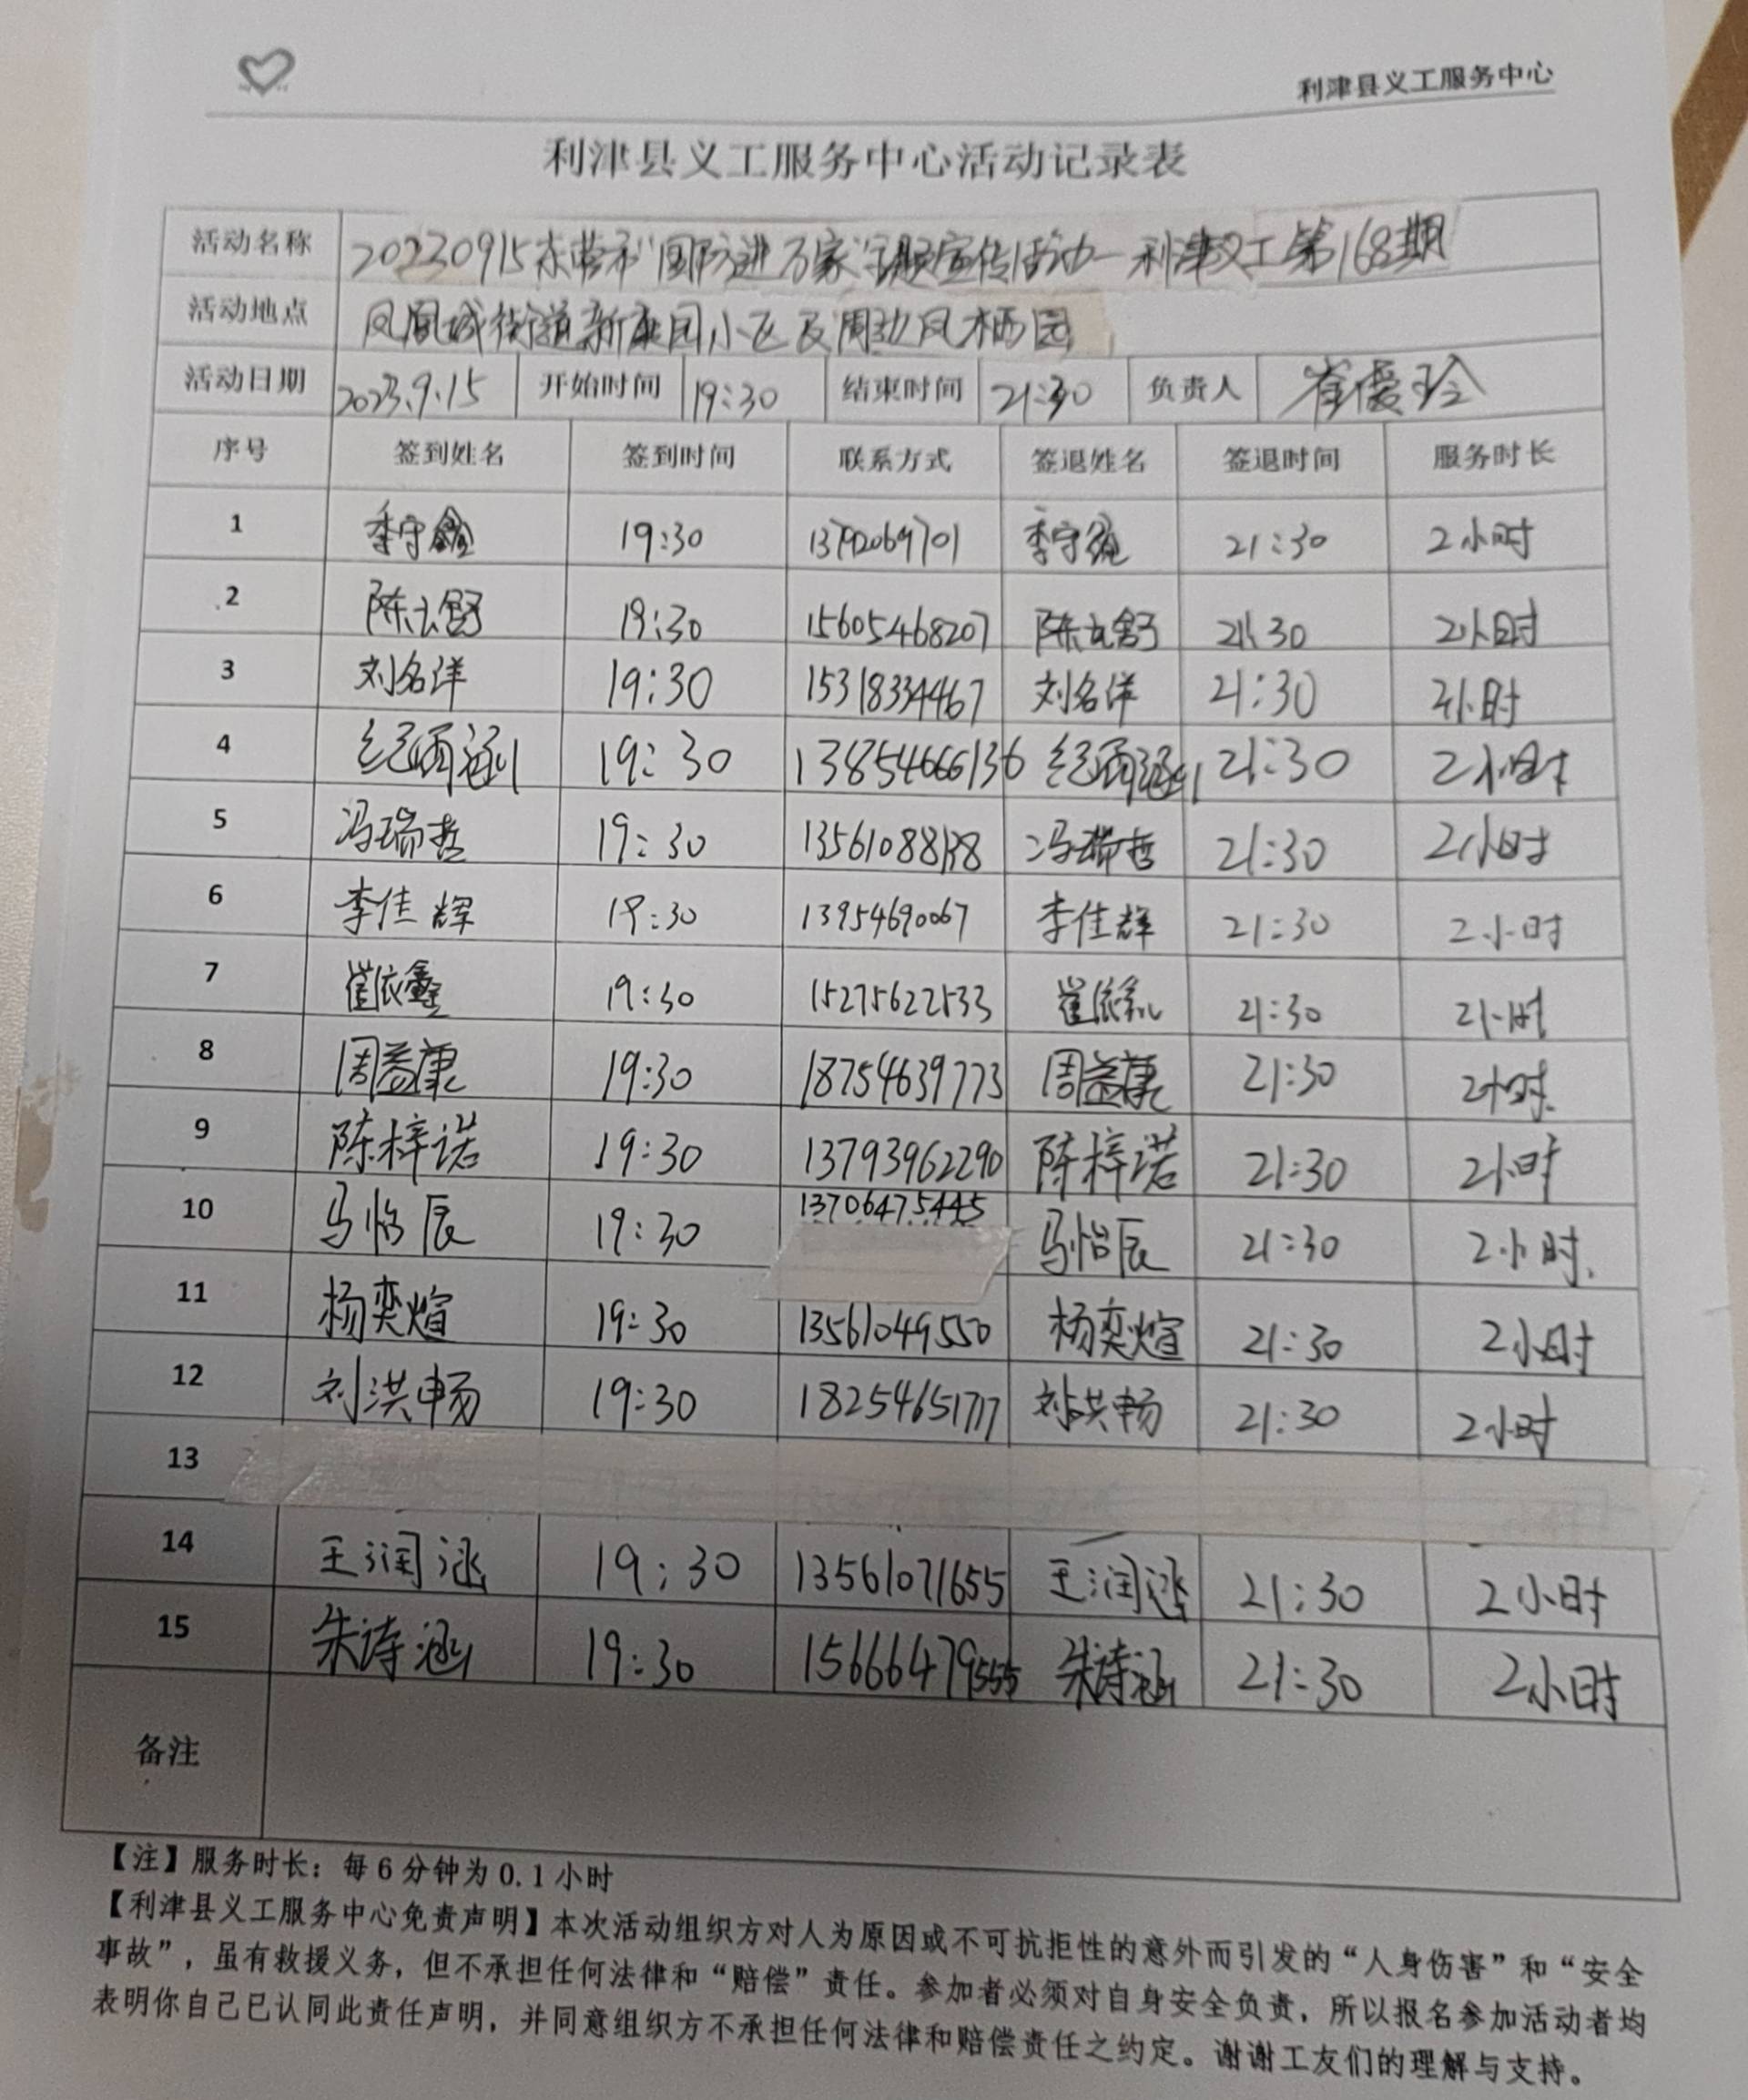 利津县义工服务中心
利津县义工服务中心活动记录表
活动名称 20230915东营市“国防进万家”主题宣传活动—利津义工第168期
活动地点 凤凰城街道新康园小区及周边凤栖园
活动日期 2023.9.15 开始时间 19:30 结束时间 21:30 负责人 崔爱玲
序号 签到姓名 签到时间 联系方式 签退姓名 签退时间 服务时长
1 季守鑫 19:30 季守鑫 21:30 2小时
2 19:30 15605468207 21:30 2小时
3 刘名洋 19:30 15318334467 刘名洋 21:30 2小时
4 纪雨涵 19:30 13854666136 纪雨涵 21:30 2小时
5 冯瑞哲 19:30 13561088138 冯瑞哲 21:30 2小时
6 李佳辉 19:30 13954690067 李佳辉 21:30 2小时
7 崔依鑫 19:30 15275622533 崔依鑫 21:30 2小时
8 周益康 19:30 18754639773 周益康 21:30 2小时.
9 陈梓诺 19:30 13793962290 陈梓诺 21:30 2小时
10 马怡辰 19:30 13706475445 马怡辰 21:30 2小时.
11 杨奕煊 19:30 13561049550 杨奕煊 21:30 2小时
12 刘洪畅 19:30 18254651717 刘洪畅 21:30 2小时
13
14 王润涵 19:30 13561071655 王润涵 21:30 2小时
15 朱诗涵 19:30 15666479555 朱诗涵 21:30 2小时
备注
【注】服务时长：每6分钟为0.1小时
【利津县义工服务中心免责声明】本次活动组织方对人为原因或不可抗拒性的意外而引发的“人身伤害”和“安全
事故”，虽有救援义务，但不承担任何法律和“赔偿”责任。参加者必须对自身安全负责，所以报名参加活动者均
表明你自己已认同此责任声明，并同意组织方不承担任何法律和赔偿责任之约定。谢谢工友们的理解与支持。